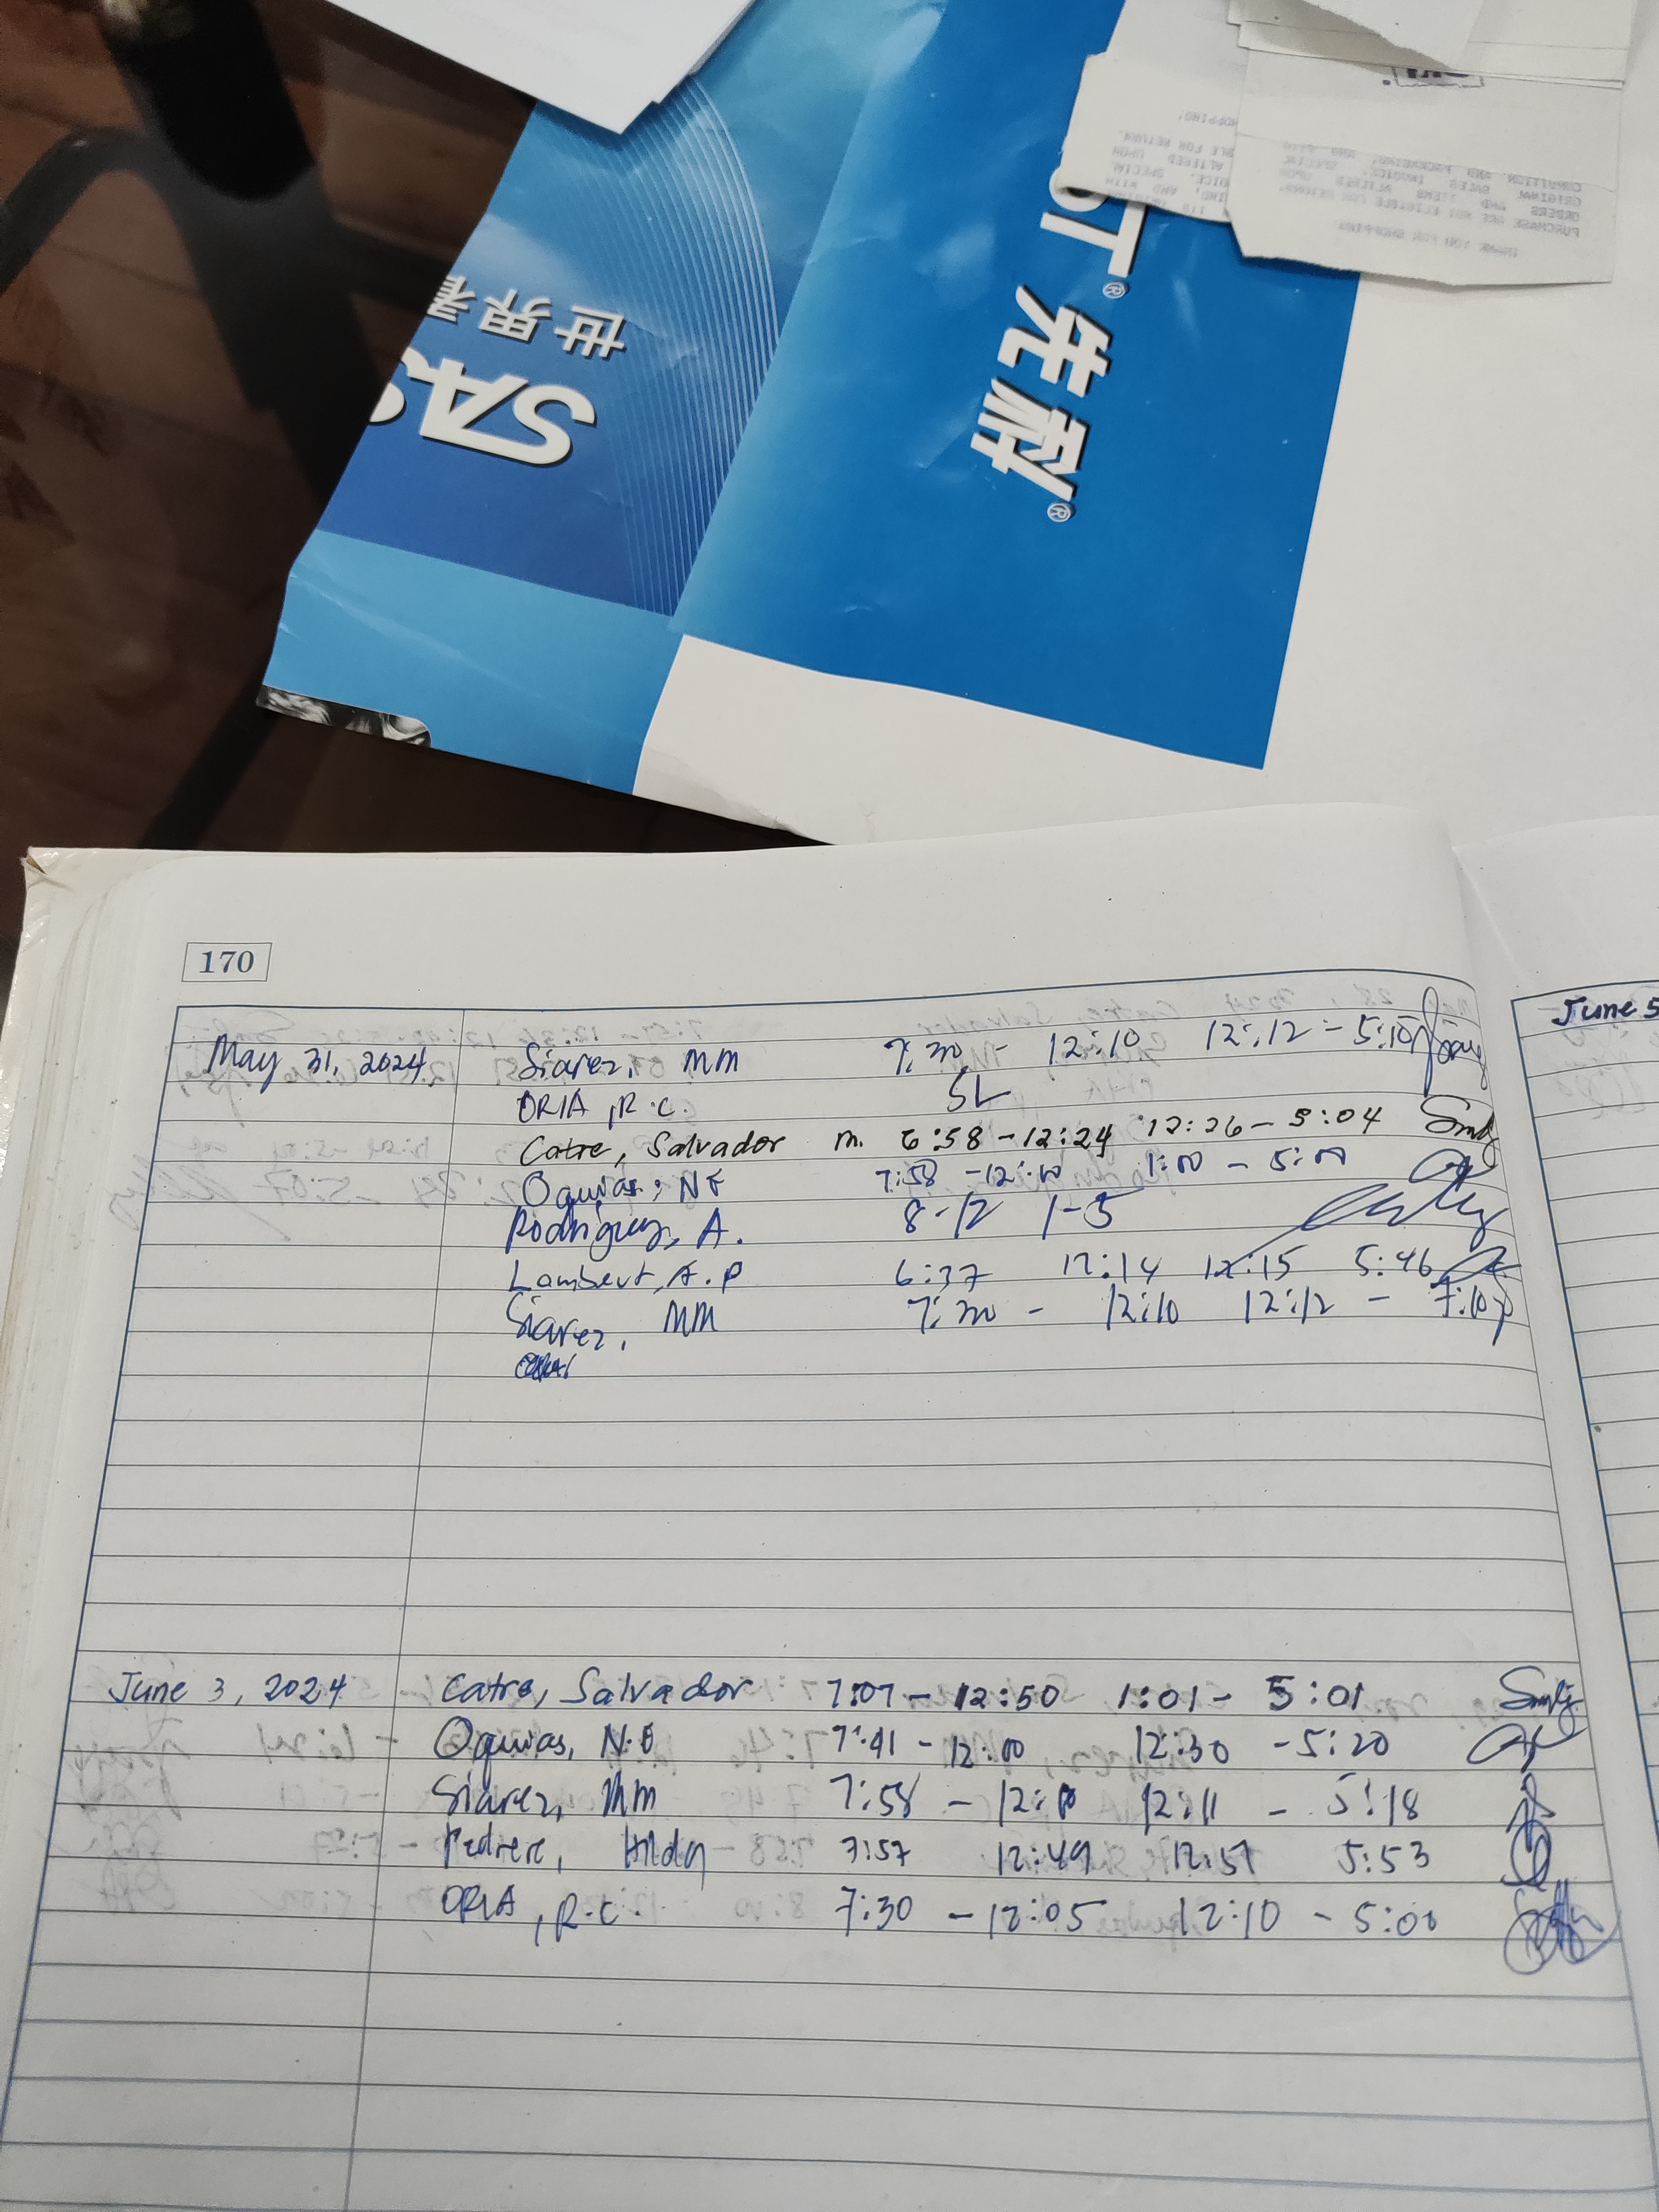 SA
世界
先融®
THANK YOU FOR SHOPPING!
PURCHASE ARE NOT ELIGIBLE FOR RETURN.
ORDERS AND ITEMS ALTERED UPON
ORIGINAL SALES INVOICE. SPECIAL
CONDITION AND PACKAGING, AND WITH
170
May 31, 2024 Siarez, MM 7:30 - 12:10 12:12 - 5:10
ORIA, R.C. SL
Catre, Salvador M. 6:58 - 12:24 12:26 - 5:04
Oquias, NE 7:58 - 12:00 1:00 - 5:00
Rodriguez, A. 8-12 1-5
Lambert, A.P 6:37 12:14 12:15 5:46
Siarez, MM 7:30 - 12:10 12:12 - 7:10
June 3, 2024 Catre, Salvador 7:07 - 12:50 1:01 - 5:01
Oquias, N.E 7:41 - 12:00 12:30 - 5:20
Siarez, MM 7:58 - 12:10 12:11 - 5:18
Pedrere, Hilda 7:57 12:49 12:57 5:53
ORIA, R.C. 7:30 - 12:05 12:10 - 5:00
June 5